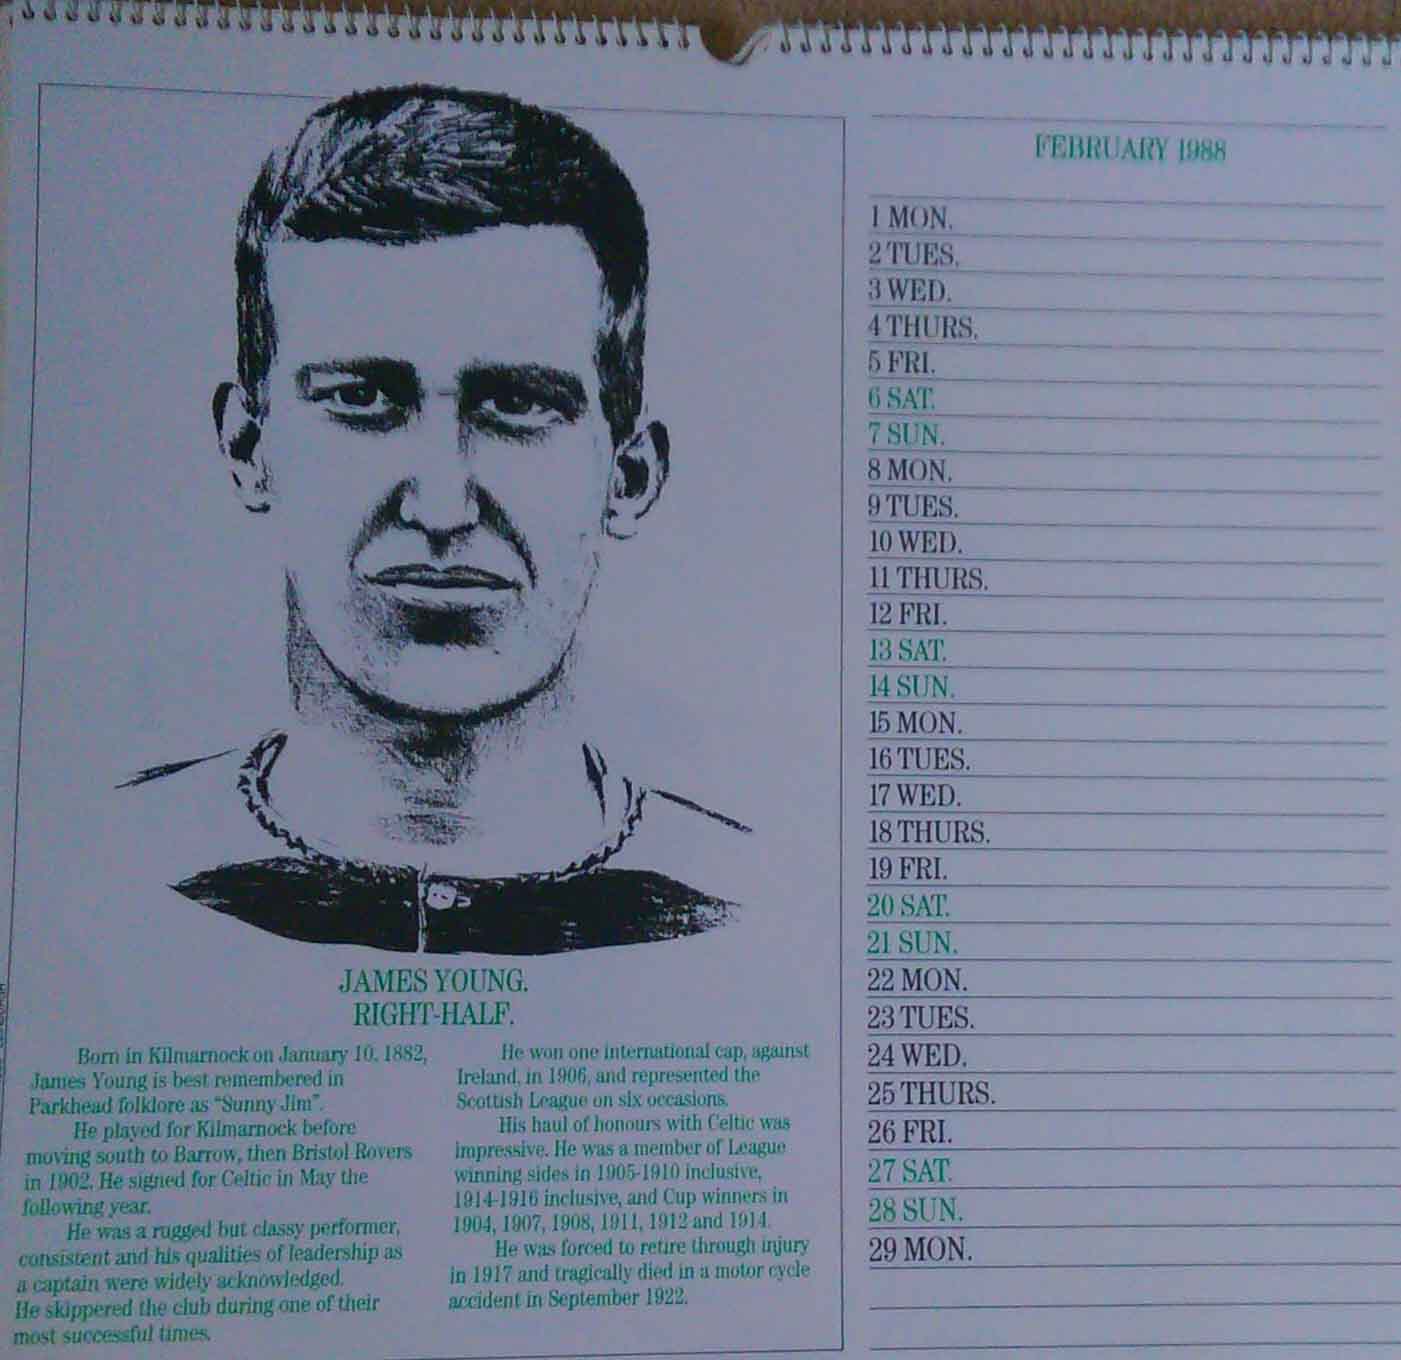 JAMES YOUNG.
RIGHT-HALF.
Born in Kilmarnock on January 10, 1882,
James Young is best remembered in
Parkhead folklore as “Sunny Jim”.
He played for Kilmarnock before
moving south to Barrow, then Bristol Rovers
in 1902. He signed for Celtic in May the
following year.
He was a rugged but classy performer,
consistent and his qualities of leadership as
a captain were widely acknowledged.
He skippered the club during one of their
most successful times.
He won one international cap, against
Ireland, in 1906, and represented the
Scottish League on six occasions.
His haul of honours with Celtic was
impressive. He was a member of League
winning sides in 1905-1910 inclusive,
1914-1916 inclusive, and Cup winners in
1904, 1907, 1908, 1911, 1912 and 1914.
He was forced to retire through injury
in 1917 and tragically died in a motor cycle
accident in September 1922.
FEBRUARY 1988
1 MON.
2 TUES.
3 WED.
4 THURS.
5 FRI.
6 SAT.
7 SUN.
8 MON.
9 TUES.
10 WED.
11 THURS.
12 FRI.
13 SAT.
14 SUN.
15 MON.
16 TUES.
17 WED.
18 THURS.
19 FRI.
20 SAT.
21 SUN.
22 MON.
23 TUES.
24 WED.
25 THURS.
26 FRI.
27 SAT.
28 SUN.
29 MON.